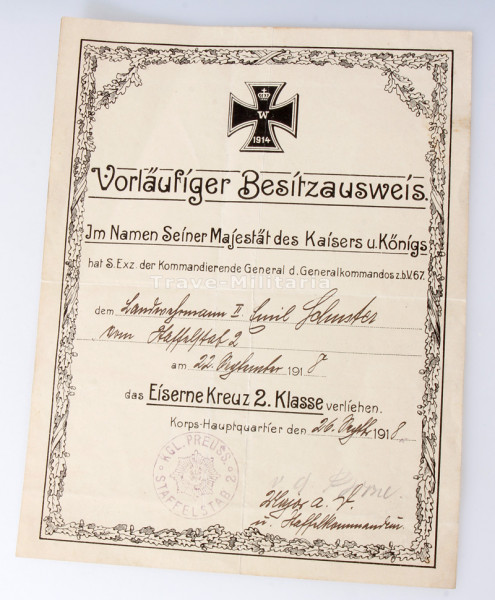 W
1914
Vorläufiger Besitzausweis.
Im Namen Seiner Majestät des Kaisers u. Königs
hat S. Exz. der Kommandierende General d. Generalkommandos z.b.V. 67.
Trave-Militaria
dem Landwehrmann II Emil Schuster
vom Staffelstab 2
am 22. September 1918
das Eiserne Kreuz 2. Klasse verliehen.
Korps-Hauptquartier den 26. Septbr 1918
KGL. PREUSS.
STAFFELSTAB 2
Major a. D.
u. Staffelkommandeur